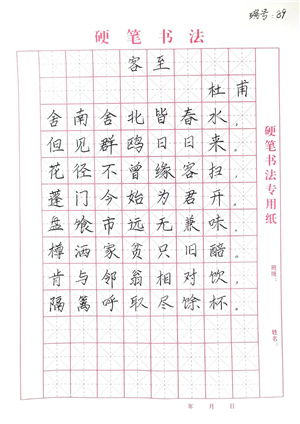 编号:89
硬笔书法
客至
杜甫
舍南舍北皆春水,
但见群鸥日日来。
花径不曾缘客扫,
蓬门今始为君开。
盘飧市远无兼味,
樽酒家贫只旧醅。
肯与邻翁相对饮,
隔篱呼取尽馀杯。
硬笔书法专用纸
班级:
姓名:
年 月 日